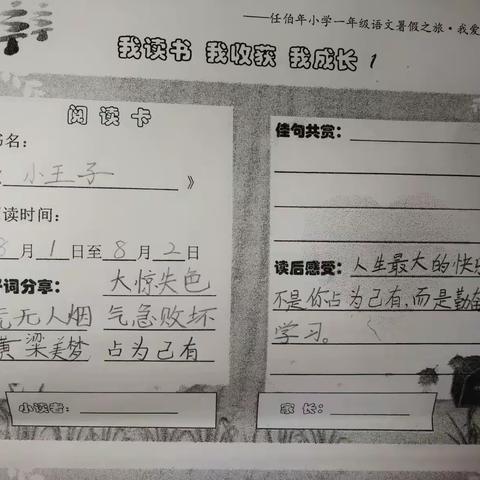 ——任伯年小学一年级语文暑假之旅·我爱
我读书 我收获 我成长 1
阅读卡
书名：
小王子 》
读时间：
8月1日至8月2日
词分享： 大惊失色
荒无人烟 气急败坏
黄粱美梦 占为己有
小读者：
佳句共赏：
读后感受：人生最大的快乐
不是你占为己有，而是勤奋
学习。
家长：